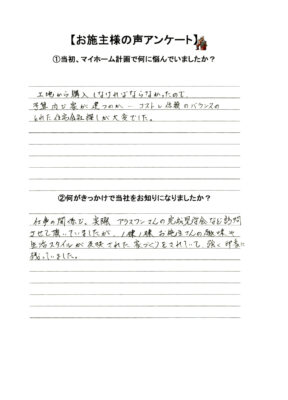 【お施主様の声アンケート】
①当初、マイホーム計画で何に悩んでいましたか？
土地から購入しなければならなかったので、
予算内で家が建つのか… コストと信頼のバランスの
とれた住宅会社探しが大変でした。
②何がきっかけで当社をお知りになりましたか？
仕事の関係で、実際 アラスワンさんの完成見学会など訪問
させて頂いていましたが、1棟1棟 お施主さんの趣味や
生活スタイルが反映された家づくりをされていて、強く印象に
残っていました。